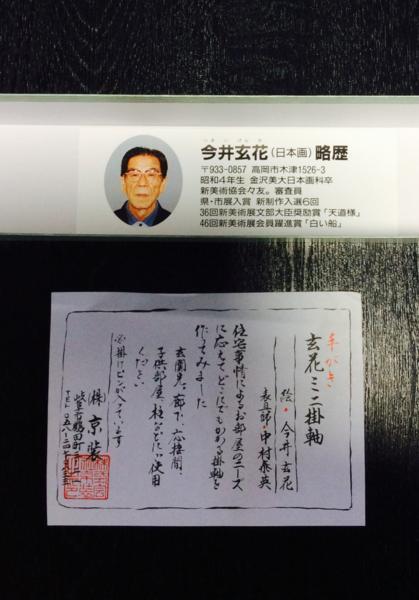 今井玄花(日本画)略歴
〒933-0857 高岡市木津1526-3
昭和4年生 金沢美大日本画科卒
新美術協会々友。審査員
県・市展入賞 新制作入選6回
36回新美術展文部大臣奨励賞「天道様」
46回新美術展会員躍進賞「白い船」
手がき
玄花ミニ掛軸
絵・今井玄花
表具師・中村飛英
住宅事情によるお部屋のニーズ
に応えて、どこにでもかかる掛軸を
作ってみました
玄関先、廊下、応接間、
子供部屋、柱などにご使用
ください
掛けピンが入っています
(株)京装
岐阜市鶴田町